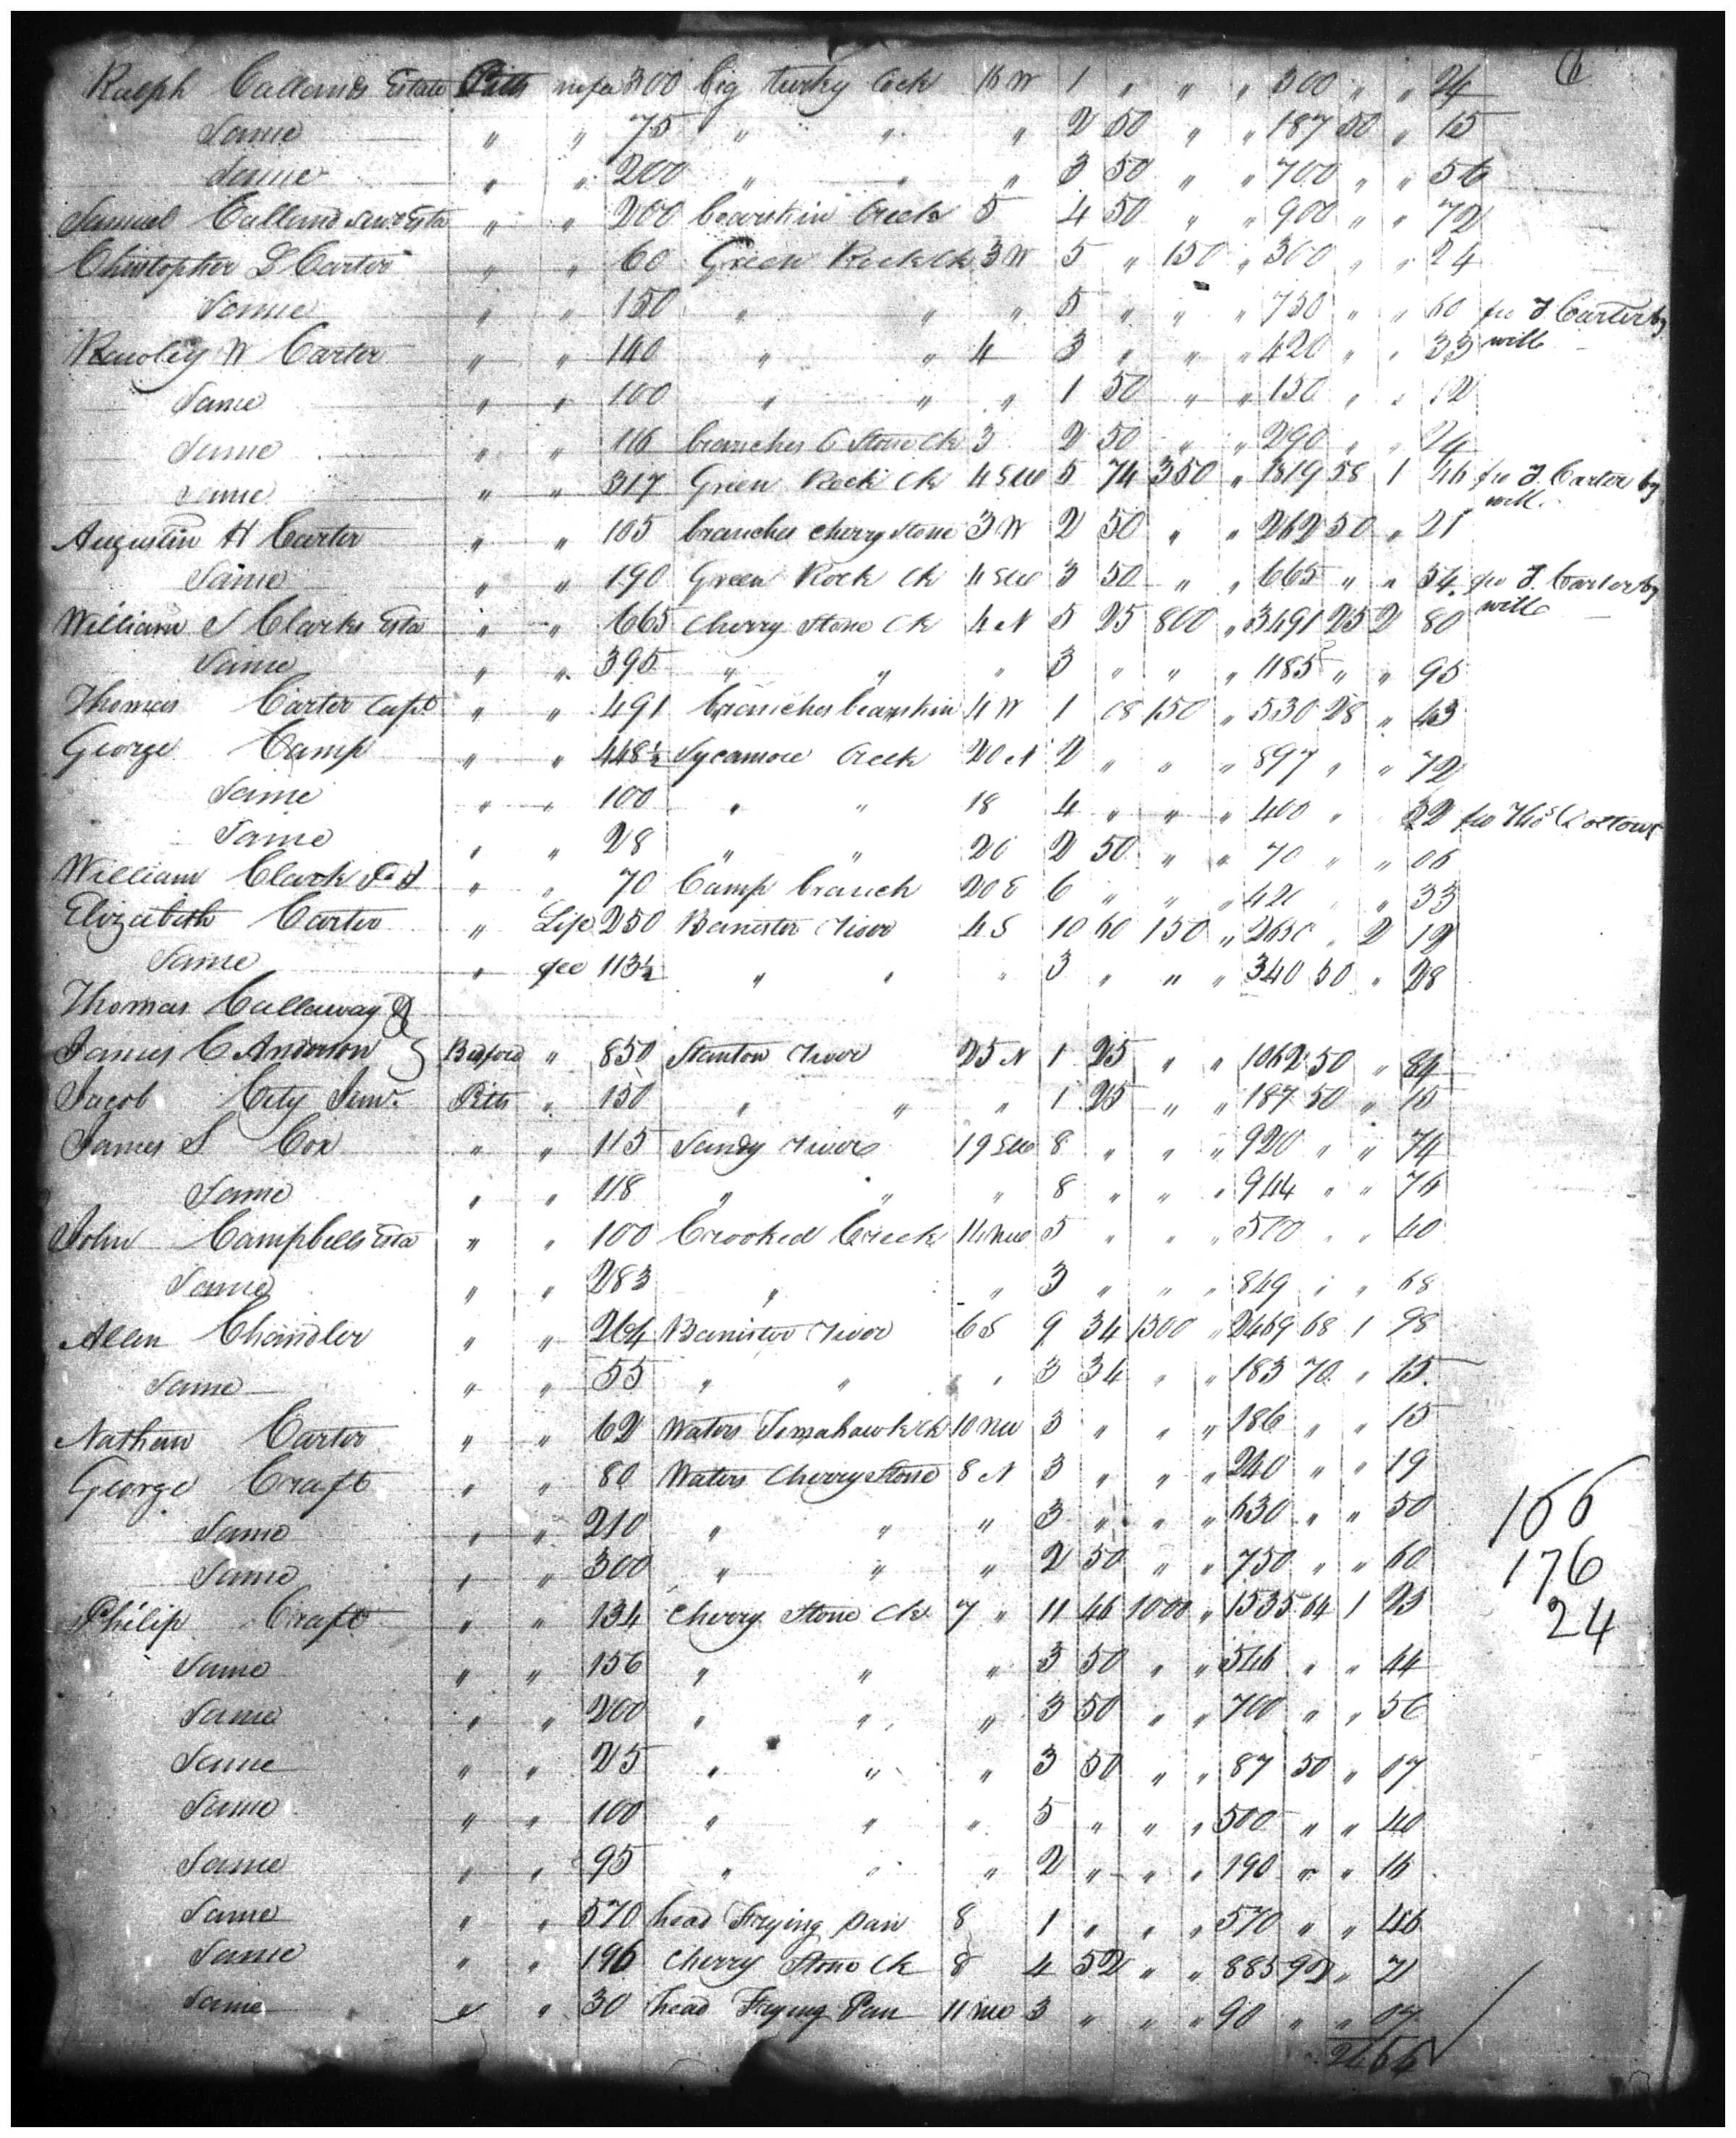 6
Ralph Callands Estate Pitts 300 big turky Cock 16 W 1 " " " 300 " " 24
Same " " 75 " " " 2 50 " " 187 50 " 15
Same " " 200 " " " 3 50 " " 700 " " 56
Samuel Calland Esta " " 200 bearskin Creek 5 4 50 " " 900 " " 72
Christopher L Carter " " 60 Green Rock Ck 3 W 5 " 150 " 300 " " 24
Same " " 150 " " " 5 " " " 750 " " 60 fro J Carter by
will
Rawley W Carter " " 140 " " 4 3 " " " 420 " " 33
Same " " 100 " " " 1 50 " " 150 " " 12
Same " " 116 branches C Stone Ck 3 2 50 " " 290 " " 24
Same " " 317 Green Rock Ck 4 SW 5 74 350 " 1819 58 1 46 fro J Carter by
will
Augustin H Carter " " 105 branches cherry stone 3 W 2 50 " " 262 50 " 21
Same " " 190 Green Rock Ck 4 SW 3 50 " " 665 " " 54 fro J Carter by
will
William S Clarks Esta " " 665 Cherry Stone Ck 4 N 5 25 800 " 3491 25 2 80
Same " " 395 " " " 3 " " " 1185 " " 95
Thomas Carter Capt " " 491 branches bearskin 4 W 1 08 150 " 530 28 " 43
George Camp " " 448½ Sycamore Creek 20 N 2 " " " 897 " " 72
Same " " 100 " " 18 4 " " " 400 " 32 fro Thos
Same " " 28 " " 20 2 50 " " 70 " " 06
William Clark " " 70 Camp branch 20 E 6 " " " 420 " " 33
Elizabeth Carter " Life 250 Banister River 4 S 10 60 150 " 2650 " 2 12
Same " fee 113½ " " " 3 " " " 340 50 " 28
Thomas Callaway &
James C Anderson Bedford " 850 Stanton River 25 N 1 25 " " 1062 50 " 84
Jacob City Junr. Pitts " 150 " " " 1 25 " " 187 50 " 15
James S Cox " " 115 Sandy River 19 SW 8 " " " 920 " " 74
Same " " 118 " " " 8 " " " 944 " " 76
John Campbells Esta " " 100 Crooked Creek 14 NW 5 " " " 500 " " 40
Same " " 283 " " 3 " " " 849 " " 68
Allen Chandler " " 264 Banister River 6 S 9 34 1300 " 2469 68 1 98
Same " " 55 " " " 3 34 " " 183 70 " 15
Nathan Carter " " 62 Waters Tomahawk Ck 10 NW 3 " " " 186 " " 15
George Craft " " 80 Waters Cherry Stone 8 N 3 " " " 240 " " 19
Same " " 210 " " " 3 " " " 630 " " 50
166
Same " " 300 " " " 2 50 " " 750 " " 60
176
Philip Craft " " 134 Cherry Stone Ck 7 " 11 46 1000 " 1535 64 1 23
24
Same " " 156 " " " 3 50 " " 546 " " 44
Same " " 200 " " " 3 50 " " 700 " " 56
Same " " 25 " " " 3 50 " " 87 50 " 07
Same " " 100 " " " 5 " " " 500 " " 40
Same " " 95 " " " 2 " " " 190 " " 16
Same " " 570 head Frying pan 8 1 " " " 570 " " 46
Same " " 196 Cherry Stone Ck 8 4 52 " " 885 92 " 71
Same " " 30 head Frying Pan 11 NW 3 " " " 90 " " 07